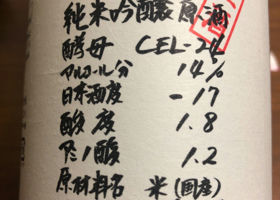 純米吟醸原酒
酵母 CEL-24
アルコール分 14%
日本酒度 -17
酸度 1.8
アミノ酸 1.2
原材料名 米(国産)